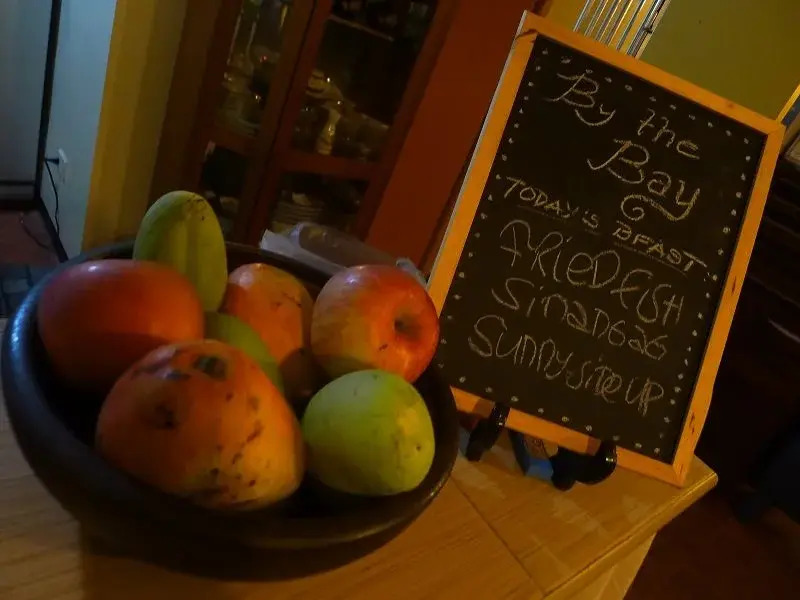 By the
Bay
TODAY'S BFAST
FRIEDFISH
SINANGAG
Sunny-side up